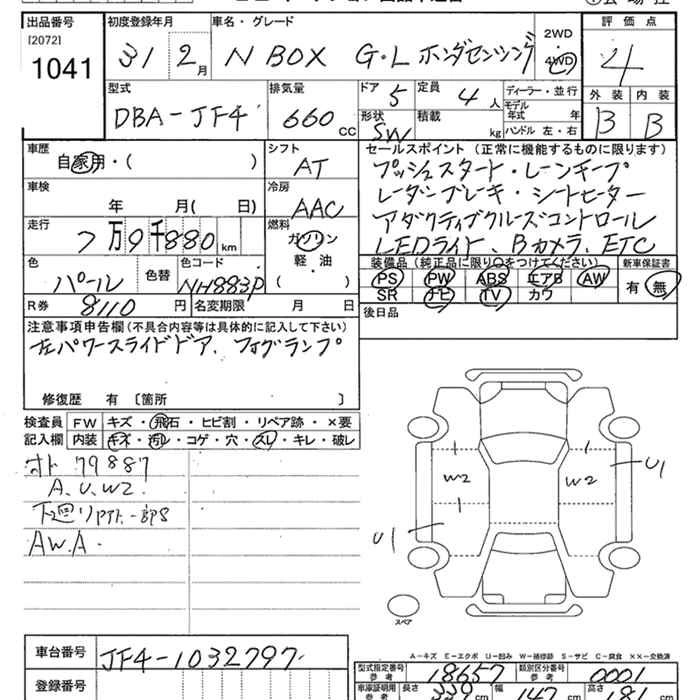 出品番号 初度登録年月 車名・グレード 2WD 評価点
[2072] 31 2月 N BOX G・L ホンダセンシング 4WD 4
1041
型式 排気量 ドア 5 定員 4人 ディーラー・並行 外装 内装
DBA-JF4 660cc 形状 SW 積載 kg モデル年式 年式 B B
ハンドル 左・右
車歴 シフト セールスポイント(正常に機能するものに限ります)
自家用・( ) AT プッシュスタート・レーンキープ
車検 冷房 レーダーブレーキ・シートヒーター
年 月( 日) AAC アダクティブクルーズコントロール
走行 燃料 LEDライト、Bカメラ、ETC
7万9千880km ガソリン 装備品(純正品に限り○をつけてください) 新車保証書
色 色替 色コード 軽・油 PS PW ABS エアB AW 有 無
パール NH883P ( ) SR ナビ TV カワ
R券 8110円 名変期限 月 日 後日品
注意事項申告欄(不具合内容等は具体的に記入して下さい)
左パワースライドドア、フォグランプ
修復歴 有〔箇所 〕
検査員 FW キズ・飛石・ヒビ割・リペア跡・×要
記入欄 内装 キズ・汚レ・コゲ・穴・スレ・キレ・破レ
オド 79887
A.U.W2.
下廻り
A W.A.
W2 W2 U1
U1
スペア
A-キズ E-エクボ U-凹み W-補修跡 S-サビ C-腐食 XX-交換済
車台番号 JF4-1032797
型式指定番号 参考 18657 類別区分番号 参考 0001
登録番号
車庫証明用 参考 長さ 339cm 幅 147cm 高さ 181cm